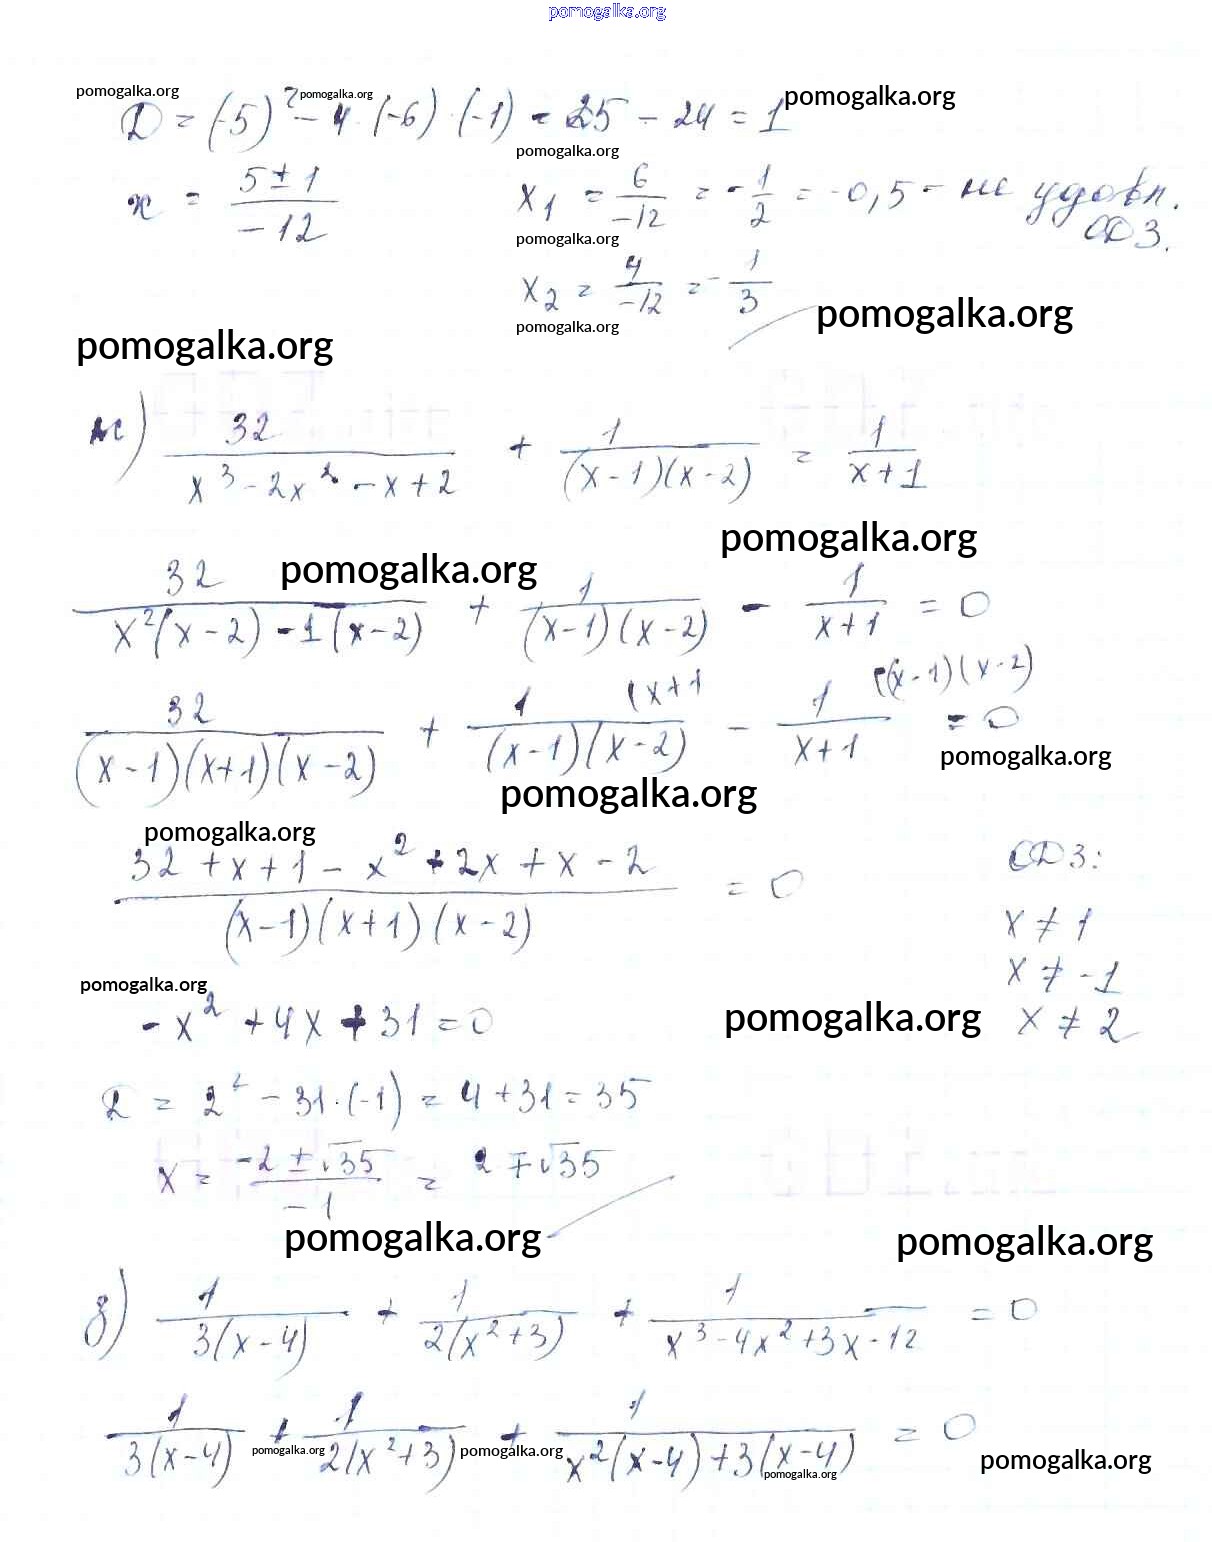 pomogalka.org
pomogalka.org pomogalka.org pomogalka.org
D = (-5)² - 4 · (-6) · (-1) = 25 - 24 = 1
pomogalka.org
x = (5 ± 1)/(-12)   x₁ = 6/(-12) = -1/2 = -0,5 - не удовл. ОДЗ.
pomogalka.org
x₂ = 4/(-12) = -1/3
pomogalka.org pomogalka.org
pomogalka.org
ж) 32/(x³ - 2x² - x + 2) + 1/((x-1)(x-2)) = 1/(x+1)
pomogalka.org
pomogalka.org
32/(x²(x-2) - 1(x-2)) + 1/((x-1)(x-2)) - 1/(x+1) = 0
32/((x-1)(x+1)(x-2)) + 1 (x+1/((x-1)(x-2)) - 1 ((x-1)(x-2)/(x+1) = 0
pomogalka.org
pomogalka.org
pomogalka.org
(32 + x + 1 - x² + 2x + x - 2)/((x-1)(x+1)(x-2)) = 0   ОДЗ:
x ≠ 1
x ≠ -1
pomogalka.org
-x² + 4x + 31 = 0 pomogalka.org x ≠ 2
D = 2² - 31·(-1) = 4 + 31 = 35
x = (-2 ± √35)/(-1) = 2 ∓ √35
pomogalka.org pomogalka.org
з) 1/(3(x-4)) + 1/(2(x²+3)) + 1/(x³ - 4x² + 3x - 12) = 0
1/(3(x-4)) + 1/(2(x²+3)) + 1/(x²(x-4) + 3(x-4)) = 0
pomogalka.org pomogalka.org pomogalka.org
pomogalka.org